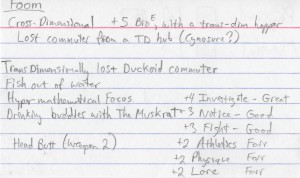 Foom
Cross-Dimensional +5 Bio E, with a trans-dim hopper
Lost commuter from a TD hub (Cynosure?)
Trans Dimensionally lost Duckoid commuter
Fish out of water
Hyper-mathematical Focus +4 Investigate - Great
Drinking buddies with The Muskrat +3 Notice - Good
+3 Fight - Good
Head Butt (Weapon 2) +2 Athletics Fair
+2 Physique Fair
+2 Lore Fair